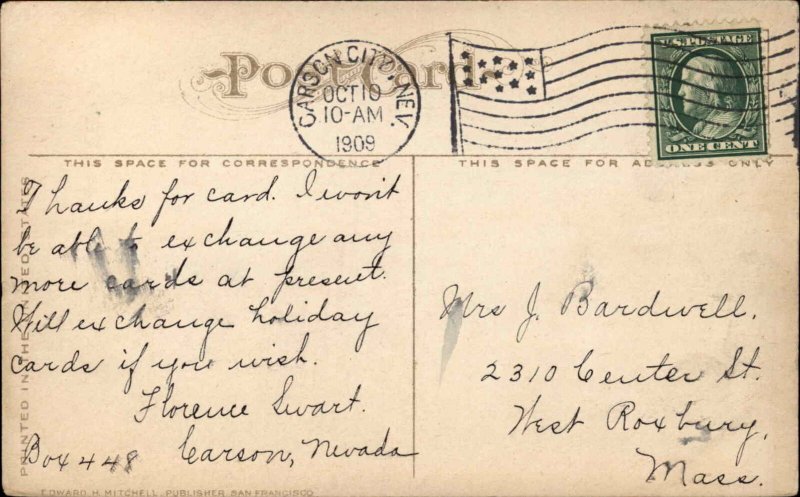 Post Card
CARSON CITY, NEV.
OCT 10
10-AM
1909
U.S. POSTAGE
ONE CENT
THIS SPACE FOR CORRESPONDENCE
THIS SPACE FOR ADDRESS ONLY
Thanks for card. I wont
be able to exchange any
more cards at present.
Will exchange holiday
cards if you wish.
Florence Swart.
Box 448 Carson, Nevada
Mrs J. Bardwell,
2310 Center St.
West Roxbury,
Mass.
PRINTED IN THE UNITED STATES
EDWARD H. MITCHELL, PUBLISHER, SAN FRANCISCO